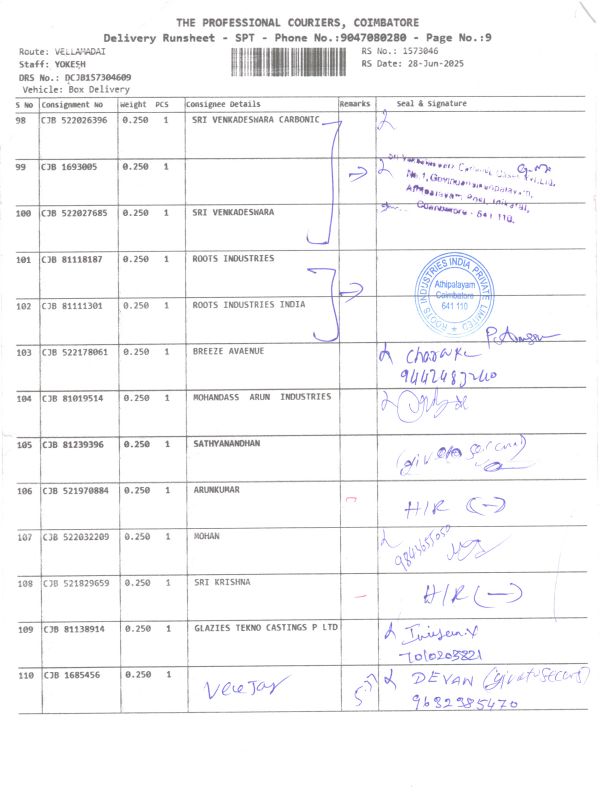 THE PROFESSIONAL COURIERS, COIMBATORE
Delivery Runsheet - SPT - Phone No.:9047080280 - Page No.:9
Route: VELLAMADAI RS No.: 1573046
Staff: YOKESH RS Date: 28-Jun-2025
DRS No.: DCJB157304609
Vehicle: Box Delivery
S No Consignment No Weight PCS Consignee Details Remarks Seal & Signature
98 CJB 522026396 0.250 1 SRI VENKADESWARA CARBONIC
99 CJB 1693005 0.250 1
No.1, Govindanaickenpalayam,
Athipalayam Post,
100 CJB 522027685 0.250 1 SRI VENKADESWARA Coimbatore - 641 110.
101 CJB 81118187 0.250 1 ROOTS INDUSTRIES
ROOTS INDUSTRIES INDIA PRIVATE LIMITED
Athipalayam
Coimbatore
641 110
102 CJB 81111301 0.250 1 ROOTS INDUSTRIES INDIA
103 CJB 522178061 0.250 1 BREEZE AVAENUE
104 CJB 81019514 0.250 1 MOHANDASS ARUN INDUSTRIES
105 CJB 81239396 0.250 1 SATHYANANDHAN
106 CJB 521970884 0.250 1 ARUNKUMAR H/R (-)
107 CJB 522032209 0.250 1 MOHAN
108 CJB 521829659 0.250 1 SRI KRISHNA H/R (-)
109 CJB 81138914 0.250 1 GLAZIES TEKNO CASTINGS P LTD
110 CJB 1685456 0.250 1 DEVAN
9682385470